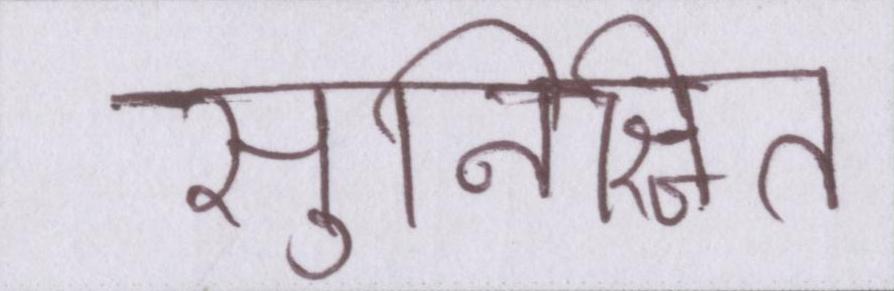 सुनिश्चित